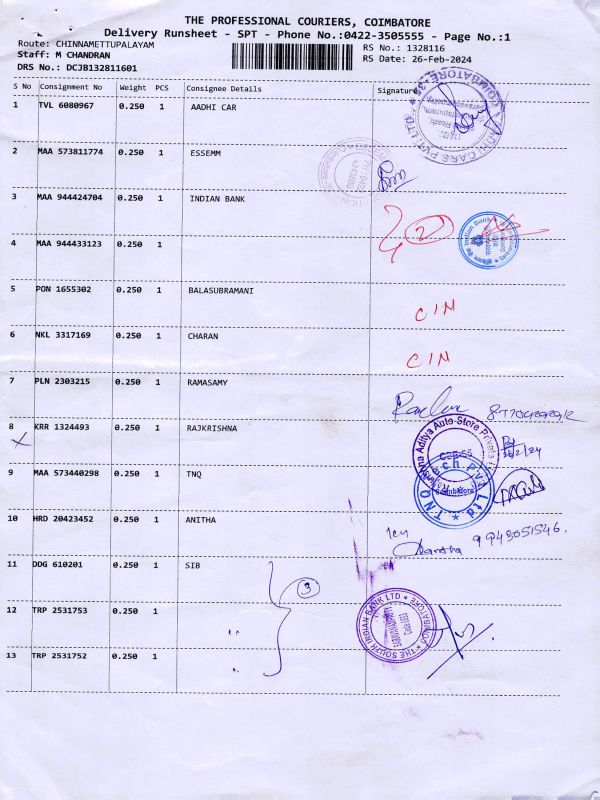 THE PROFESSIONAL COURIERS, COIMBATORE
Delivery Runsheet - SPT - Phone No.:0422-3505555 - Page No.:1
Route: CHINNAMETTUPALAYAM
RS No.: 1328116
Staff: M CHANDRAN
RS Date: 26-Feb-2024
DRS No.: DCJB132811601
S No Consignment No Weight PCS Consignee Details Signature
1 TVL 6080967 0.250 1 AADHI CAR
2 MAA 573811774 0.250 1 ESSEMM
3 MAA 944424704 0.250 1 INDIAN BANK
2
Indian Bank
4 MAA 944433123 0.250 1
5 PON 1655302 0.250 1 BALASUBRAMANI
CIN
6 NKL 3317169 0.250 1 CHARAN
CIN
7 PLN 2303215 0.250 1 RAMASAMY
8 KRR 1324493 0.250 1 RAJKRISHNA
X
Aditya Auto-Store Private
9 MAA 573440298 0.250 1 TNQ
TNQ Pvt Ltd.
Coimbatore
10 HRD 20423452 0.250 1 ANITHA
9943051546.
11 DDG 610201 0.250 1 SIB
3
THE SOUTH INDIAN BANK LTD
COIMBATORE
12 TRP 2531753 0.250 1 "
13 TRP 2531752 0.250 1 "